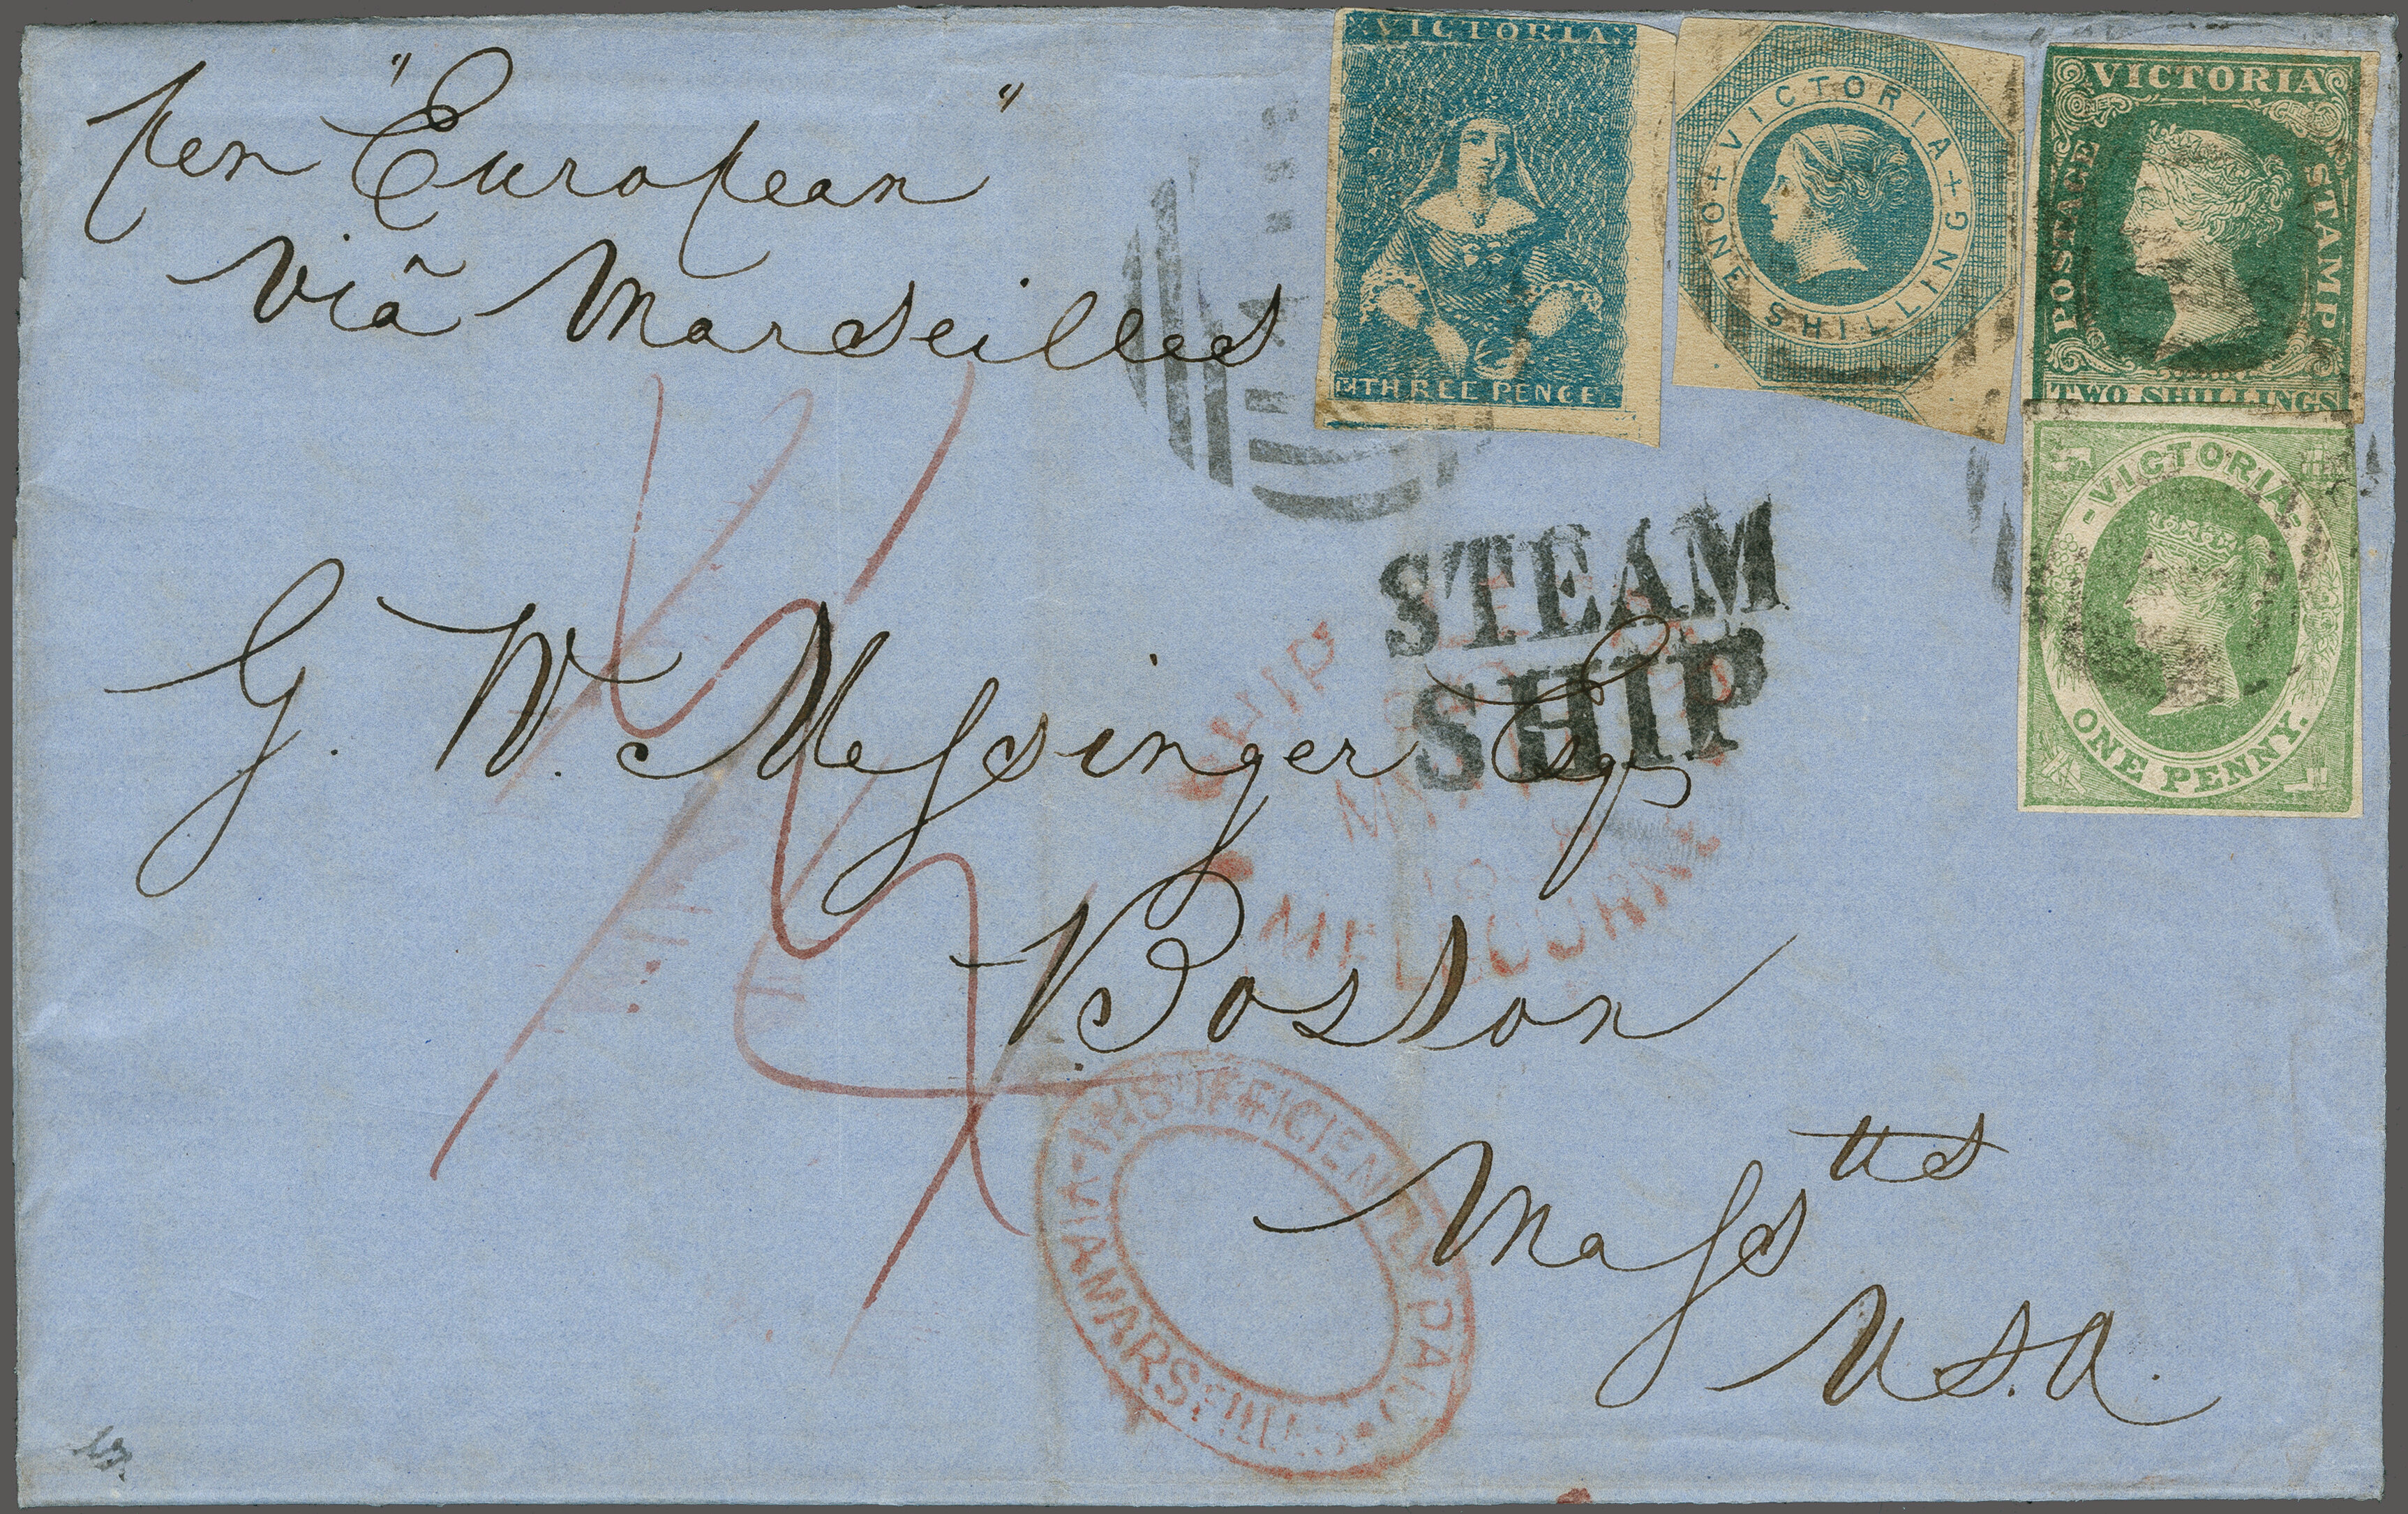 per "European"
viâ Marseilles
VICTORIA
THREE PENCE
VICTORIA
ONE SHILLING
VICTORIA
POSTAGE
STAMP
TWO SHILLINGS
VICTORIA
ONE PENNY.
STEAM
SHIP
SHIP
MELBOURNE
G. W. Meſsinger Esqr
Boston
Maſstts
U.S.A.
INSUFFICIENTLY PAID
VIA MARSEILLES